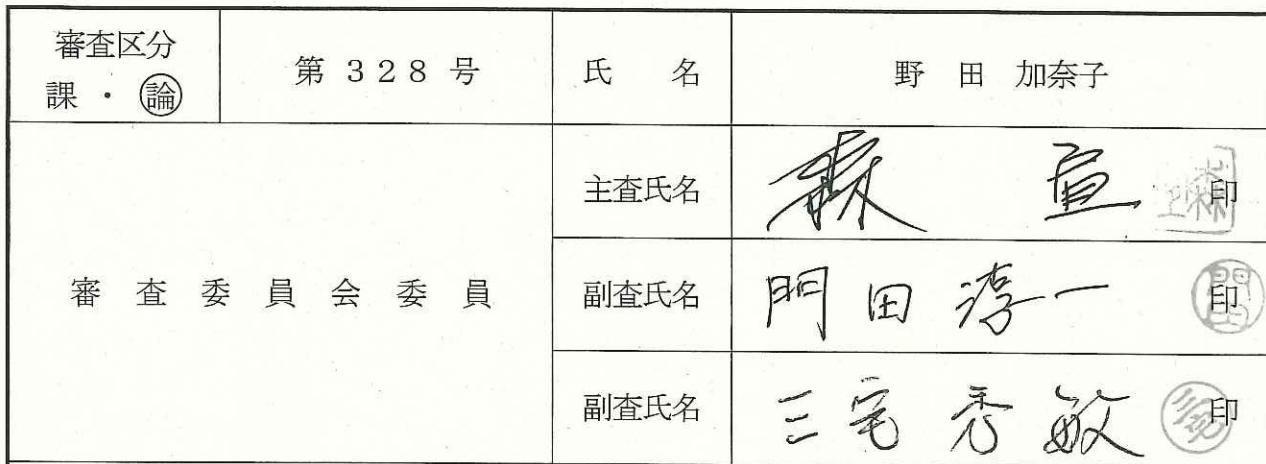 審査区分
課 ・ 論
第 328 号
氏 名
野 田 加奈子
審 査 委 員 会 委 員
主査氏名
森 直 印
副査氏名
門田 淳一 印
副査氏名
三宅 秀敏 印